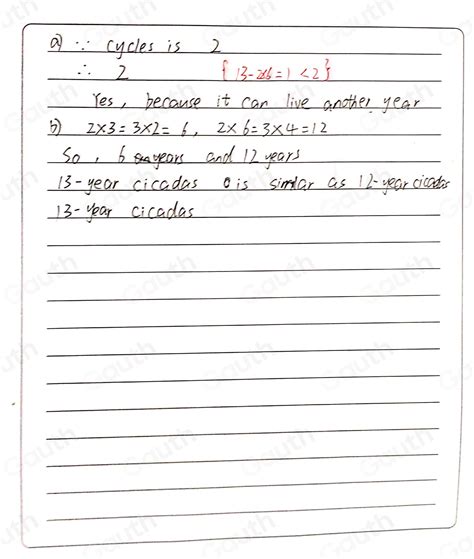 a) ∵ cycles is 2
∴ 2 { 13-2x6=1 <2 }
Yes, because it can live another year
b) 2x3=3x2=6, 2x6=3x4=12
So, 6 years and 12 years
13-year cicadas is similar as 12-year cicadas
13-year cicadas